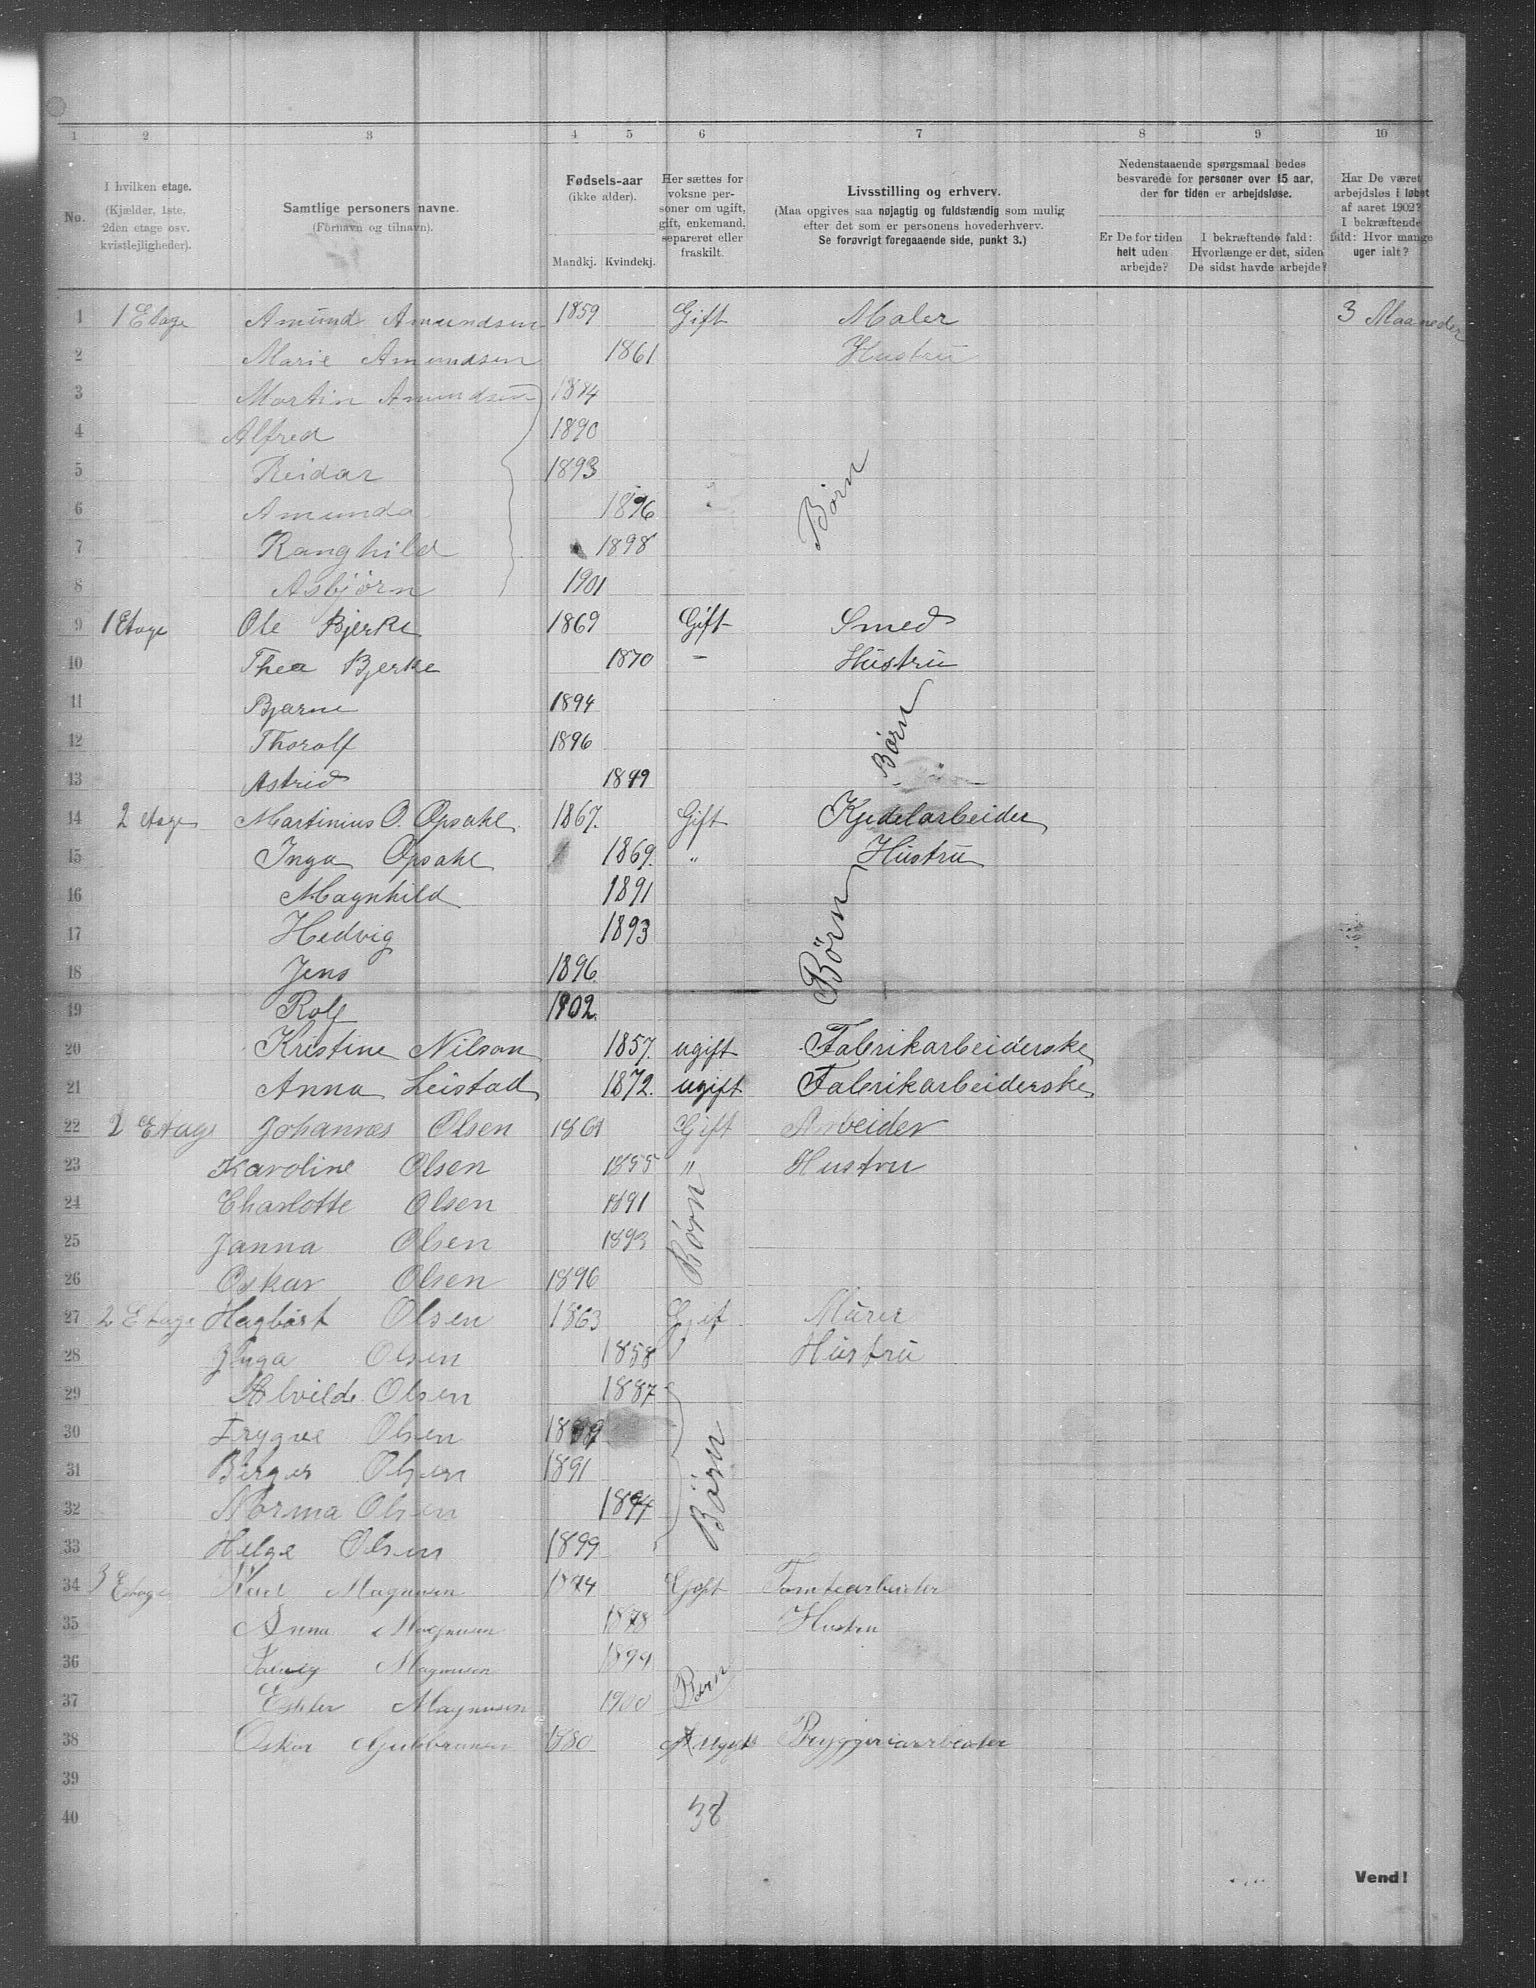 1 2 3 4 5 6 7 8 9 10
No.
I hvilken etage.
(Kjælder, 1ste,
2den etage osv.
kvistlejligheder).
Samtlige personers navne.
(Fornavn og tilnavn).
Fødsels-aar
(ikke alder).
Mandkj. Kvindekj.
Her sættes for
voksne per-
soner om ugift,
gift, enkemand,
separeret eller
fraskilt.
Livsstilling og erhverv.
(Maa opgives saa nøjagtig og fuldstændig som mulig
efter det som er personens hovederhverv.
Se forøvrigt foregaaende side, punkt 3.)
Nedenstaaende spørgsmaal bedes
besvarede for personer over 15 aar,
der for tiden er arbejdsløse.
Er De for tiden
helt uden
arbejde?
I bekræftende fald:
Hvorlænge er det, siden
De sidst havde arbejde?
Har De været
arbejdsløs i løbet
af aaret 1902?
I bekræftende
fald: Hvor mange
uger ialt?
1 1 Etage Amund Amundsen 1859 Gift Maler 3 Maaneder
2 Marie Amundsen 1861 Hustru
3 Martin Amundsen 1884
4 Alfred 1890
5 Reidar 1893 Børn
6 Amunda 1896
7 Ranghild 1898
8 Asbjørn 1901
9 1 Etage Ole Bjerke 1869 Gift Smed
10 Thea Bjerke 1870 – Hustru
11 Bjarne 1894
12 Thorolf 1896 Børn
13 Astrid 1899
14 2 etage Martinius O. Opsahl 1867. Gift Kjedelarbeider
15 Inga Opsahl 1869. " Hustru
16 Magnhild 1891
17 Hedvig 1893 Børn
18 Jens 1896.
19 Rolf 1902.
20 Kristine Nilson 1857. ugift Fabrikarbeiderske
21 Anna Leistad 1872. ugift Fabrikarbeiderske
22 2 Etage Johannes Olsen 1861 Gift Arbeider
23 Karoline Olsen 1855 " Hustru
24 Charlotte Olsen 1891
25 Janna Olsen 1893 Børn
26 Oskar Olsen 1896
27 2 Etage Hagbart Olsen 1863 Gift Murer
28 Inga Olsen 1858 Hustru
29 Alvilde Olsen 1887
30 Trygve Olsen
31 Birger Olsen 1891 Børn
32 Norma Olsen 1894
33 Helge Olsen 1899
34 3 Etage Karl Magnusen 1874 Gift Tomtearbeider
35 Anna Magnusen 1878 Hustru
36 Magnusen 1899
37 Esther Magnusen 1900 Børn
38 Oskar Gulbransen 1880 Ugift Bryggeriarbeider
39
40 38
Vend!